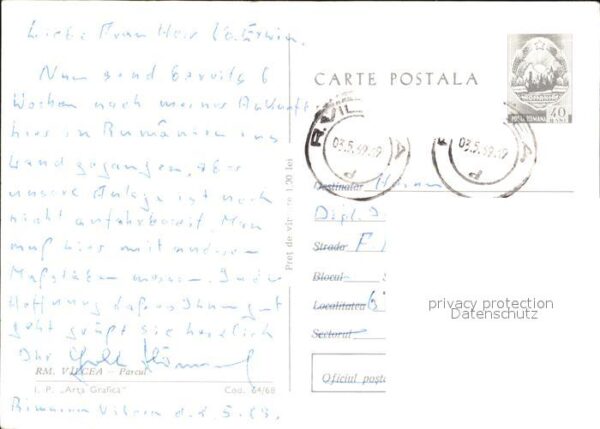 Liebe Frau Heir
Nun sind bereits 6
Wochen nach meiner Ankunft
hier in Rumänien ins
Land gegangen, aber
unsere Anlage ist noch
nicht anfahrbereit. Man
muß hier mit anderen
Maßstäben messen. In der
Hoffnung daß es Ihnen gut
geht grüßt Sie herzlich
Ihr
RM. VÎLCEA — Parcul
I. P. „Arta Grafică”
Cod. 64/68
d. 2.5.69.
Preț de vînzare 1,00 lei
CARTE POSTALA
POSTA ROMANA
40
BANI
R. VIL
03.5.69.
A
P
03.5.69.
A
P
Destinatar Herrn
Dipl.
Strada F.
Blocul
Localitatea
Sectorul
Oficiul poșt
privacy protection
Datenschutz